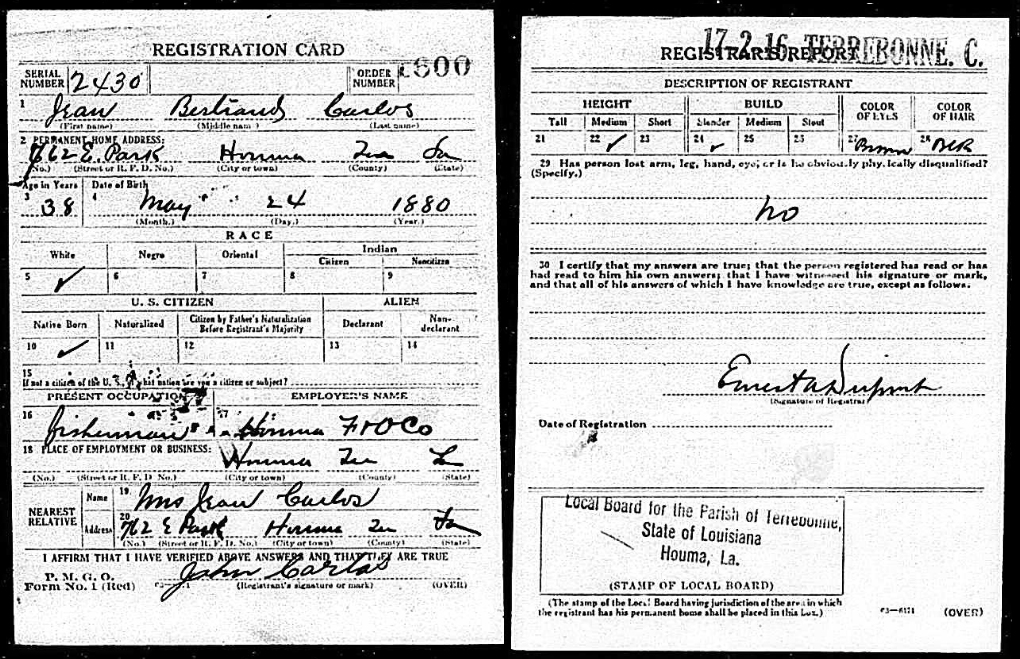 REGISTRATION CARD
SERIAL NUMBER 2430
ORDER NUMBER 1800
1 Jean Bertrand Carlos
(First name) (Middle name) (Last name)
2 PERMANENT HOME ADDRESS:
762 E. Park Houma Ter La
(No.) (Street or R. F. D. No.) (City or town) (County) (State)
Age in Years Date of Birth
3 38 4 May 24 1880
(Month.) (Day.) (Year.)
RACE
White Negro Oriental Indian
Citizen Noncitizen
5 ✓ 6 7 8 9
U. S. CITIZEN ALIEN
Native Born Naturalized Citizen by Father's Naturalization Before Registrant's Majority Declarant Non-declarant
10 ✓ 11 12 13 14
15
If not a citizen of the U. S., of what nation are you a citizen or subject?
PRESENT OCCUPATION EMPLOYER'S NAME
16 fisherman 17 Houma F & O Co
18 PLACE OF EMPLOYMENT OR BUSINESS:
Houma Ter La
(No.) (Street or R. F. D. No.) (City or town) (County) (State)
NEAREST RELATIVE
Name 19 Mrs Jean Carlos
Address 20 762 E Park Houma Ter La
(No.) (Street or R. F. D. No.) (City or town) (County) (State)
I AFFIRM THAT I HAVE VERIFIED ABOVE ANSWERS AND THAT THEY ARE TRUE
P. M. G. O.
Form No. 1 (Red)
John Carlos
(Registrant's signature or mark) (OVER)
17 2 16 TERREBONNE. C.
REGISTRAR'S REPORT
DESCRIPTION OF REGISTRANT
HEIGHT BUILD COLOR OF EYES COLOR OF HAIR
Tall Medium Short Slender Medium Stout
21 22 ✓ 23 24 ✓ 25 26 27 Brown 28 Blk
29 Has person lost arm, leg, hand, eye, or is he obviously physically disqualified?
(Specify.)
no
30 I certify that my answers are true; that the person registered has read or has
had read to him his own answers; that I have witnessed his signature or mark,
and that all of his answers of which I have knowledge are true, except as follows.
Ernest A Dupont
(Signature of Registrar)
Date of Registration
Local Board for the Parish of Terrebonne,
State of Louisiana
Houma, La.
(STAMP OF LOCAL BOARD)
(The stamp of the Local Board having jurisdiction of the area in which
the registrant has his permanent home shall be placed in this box.)
03—6171 (OVER)